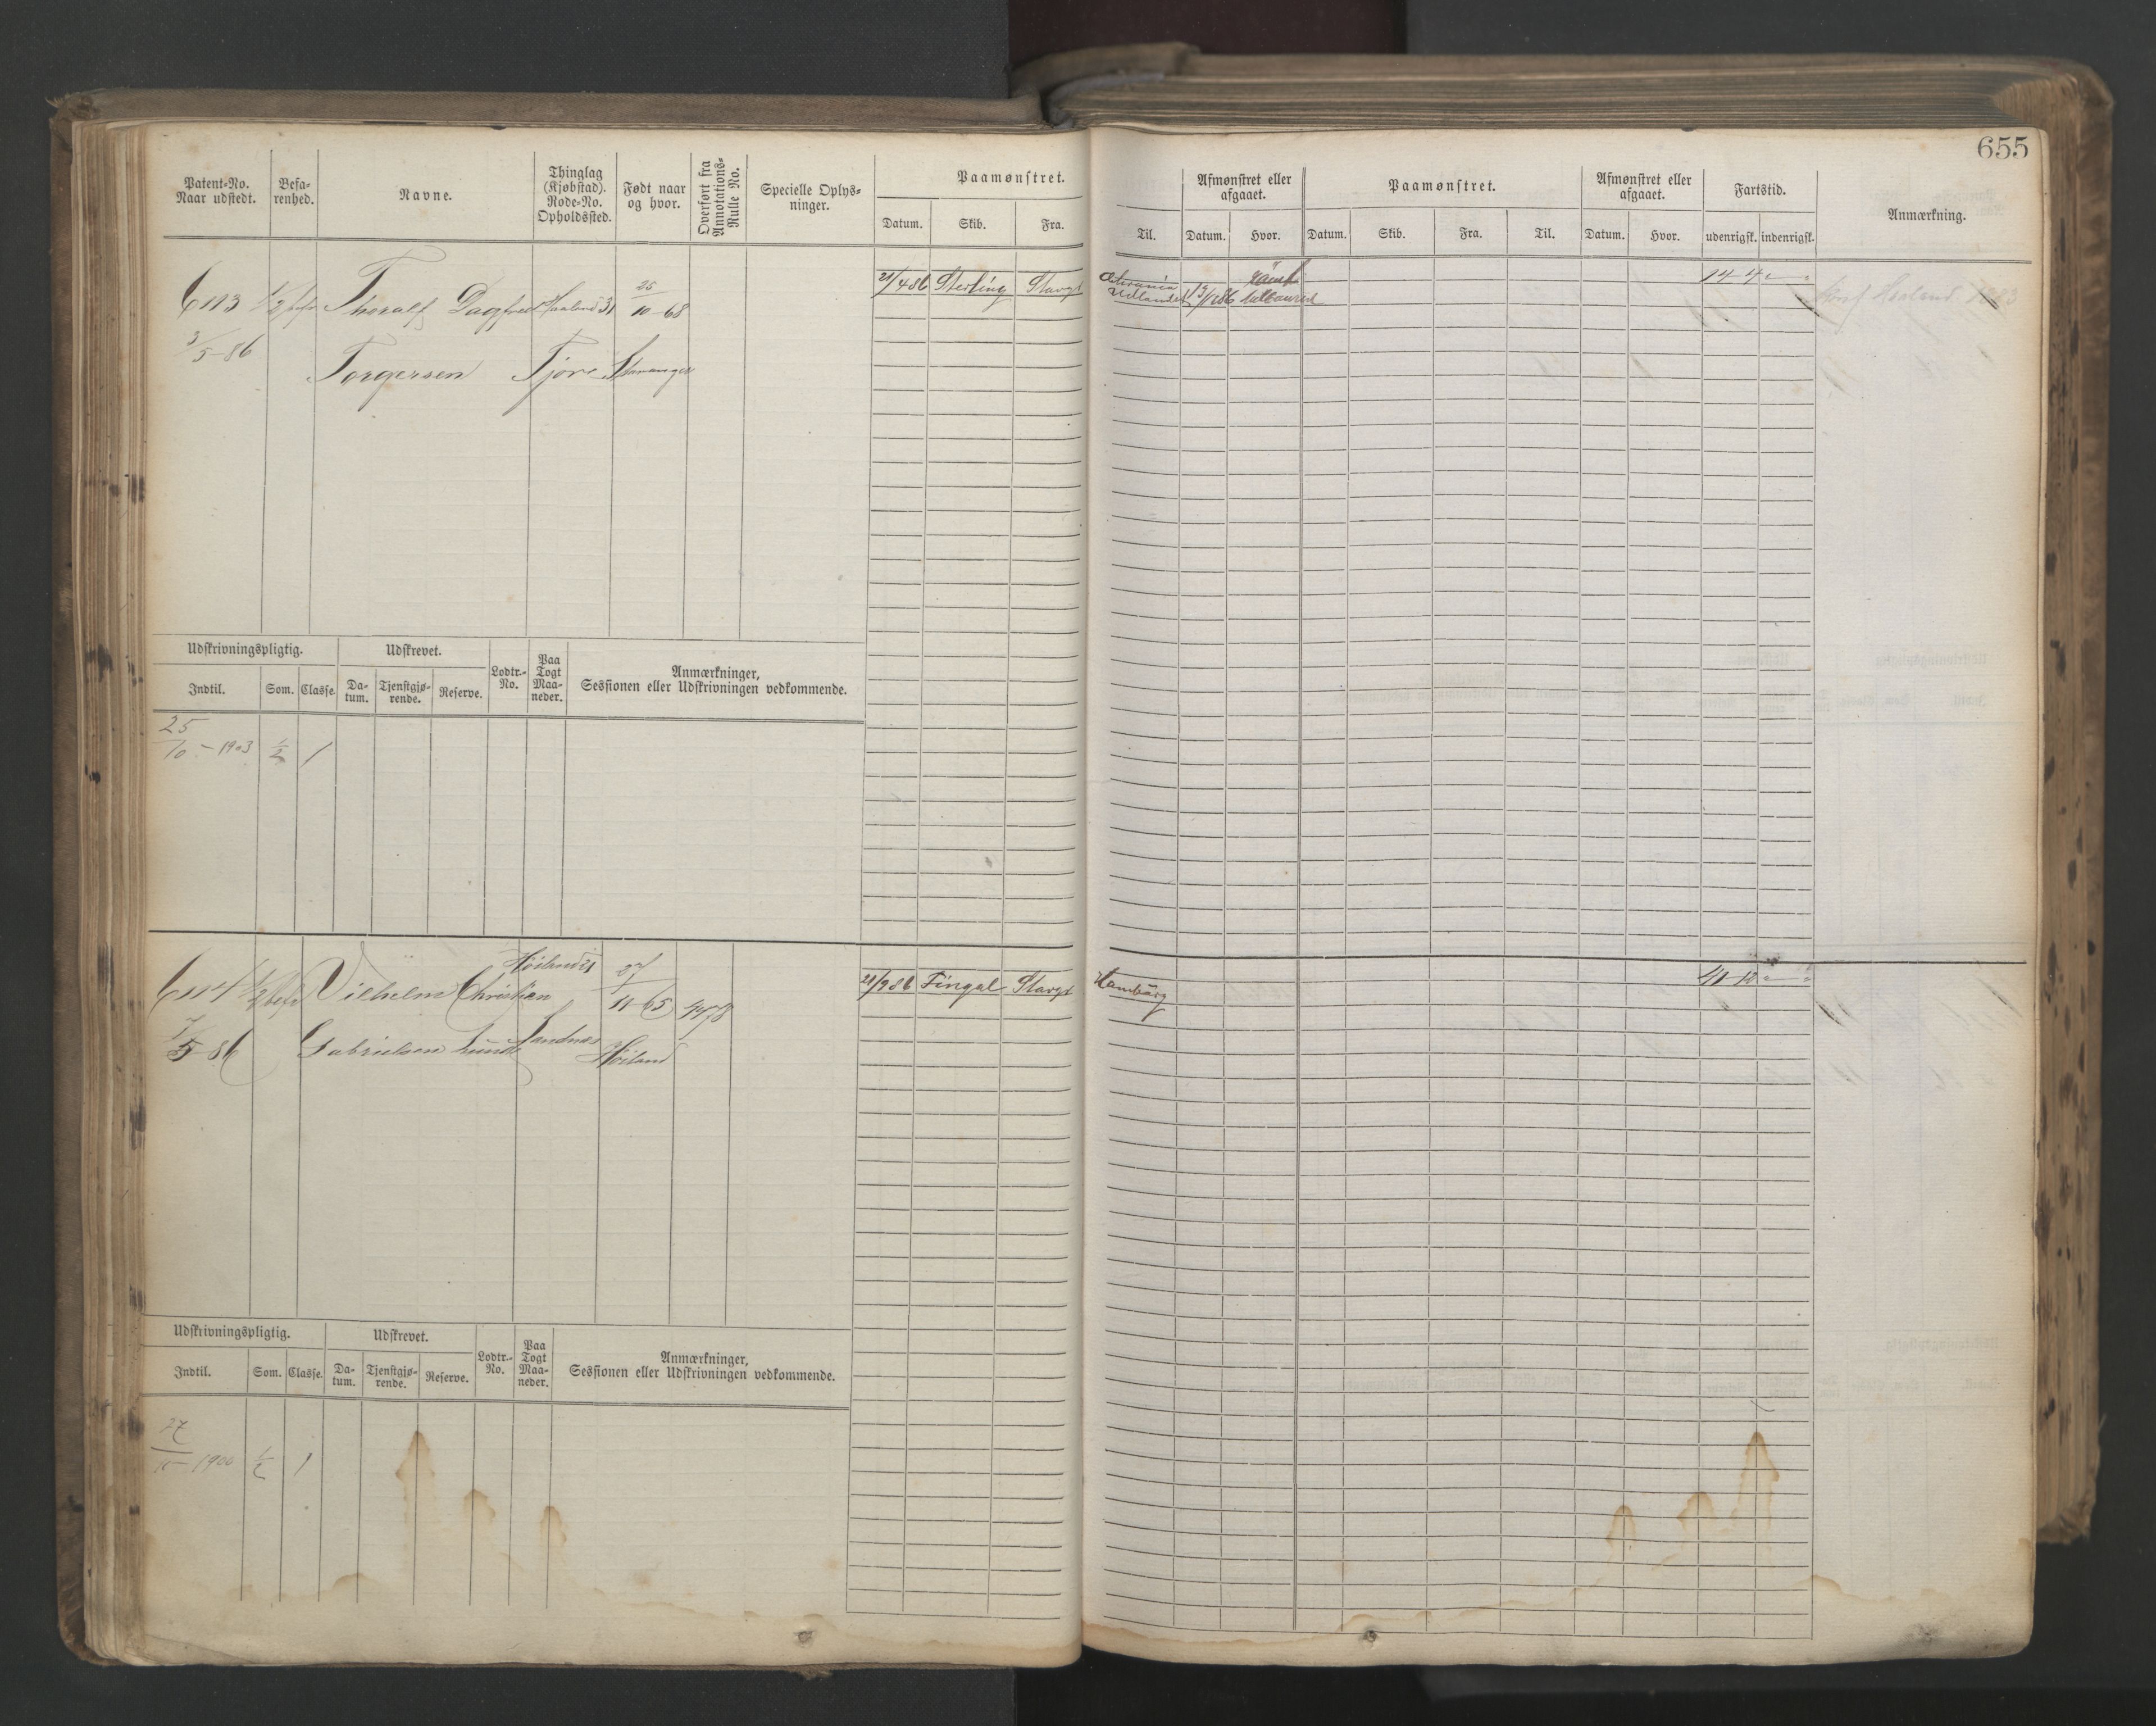 655
Patent-No. Naar udstedt.
Befarenhed.
Navne.
Thinglag (Kjøbstad). Rode-No. Opholdssted.
Født naar og hvor.
Overført fra Annotations-Rulle No.
Specielle Oplysninger.
Paamønstret.
Datum. Skib. Fra. Til.
Afmønstret eller afgaaet.
Datum. Hvor.
Paamønstret.
Datum. Skib. Fra. Til.
Afmønstret eller afgaaet.
Datum. Hvor.
Fartstid.
udenrigsk. indenrigsk.
Anmærkning.
6113 1/2 befr Thoralf Dagfred Haaland 31 25/10-68
3/5-86 Torgersen Tjore Stavanger
21/4 86 Sterling Stavgr
Udlandet
14 4
Udskrivningspligtig. Udskrevet. Lodtr.-No. Paa Togt Maaneder. Anmærkninger, Sessionen eller Udskrivningen vedkommende.
Indtil. Som. Classe. Datum. Tjenstgjørende. Reserve.
25/10-1903 1/2 1
6114 1/2 befr Vilhelm Christian Høiland 27/11-65 1478
7/5-86 Gabrielsen Lunde Sandnæs Høiland
21/9 86 Fingal Stavgr Hamburg
41 12
Udskrivningspligtig. Udskrevet. Lodtr.-No. Paa Togt Maaneder. Anmærkninger, Sessionen eller Udskrivningen vedkommende.
Indtil. Som. Classe. Datum. Tjenstgjørende. Reserve.
1900 1/2 1